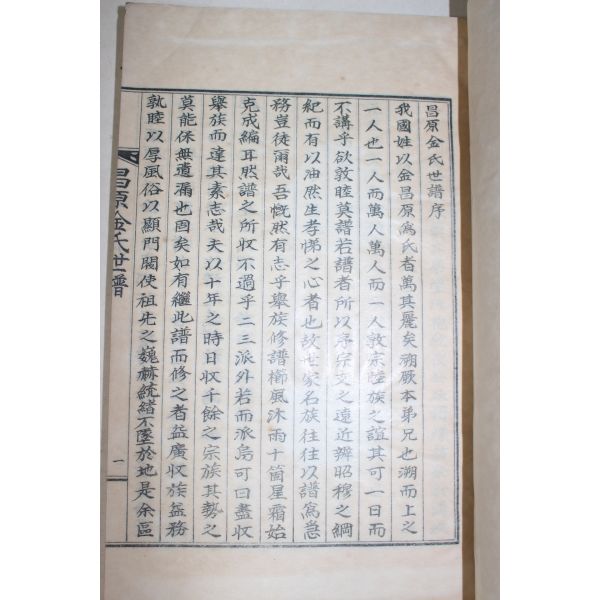 昌原金氏世譜序
我國姓以金昌原爲氏者萬其麗矣溯厥本弟兄也溯而上之
一人也一人而萬人萬人而一人敦宗睦族之誼其可一日而
不講乎欲敦睦莫譜若譜者所以序宗支之遠近辨昭穆之綱
紀而有以油然生孝悌之心者也故世家名族往往以譜爲急
務豈徒爾哉吾慨然有志乎擧族修譜櫛風沐雨十箇星霜始
克成編耳然譜之所収不過乎二三派外若而派烏可曰盡収
擧族而達其素志哉夫以十年之時日収千餘之宗族其勢之
莫能保無遺漏也固矣如有繼此譜而修之者益廣収族益務
孰睦以厚風俗以顯門閥使祖先之巍赫統緖不墜於地是余區
昌原金氏世譜
一